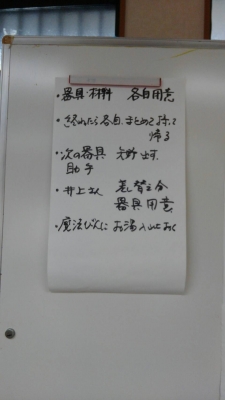 ・器具・材料 各自用意
・終わったら各自、まとめて持って
帰る
・次の器具 矢野
助手
・井上さん 差し替え分
器具用意
・魔法びんに お湯入れておく